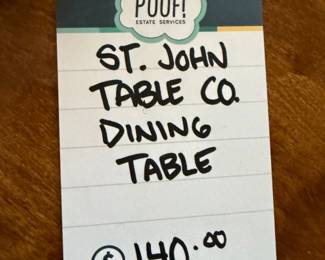 POOF!
ESTATE SERVICES
ST. JOHN
TABLE CO.
DINING
TABLE
$ 140.00